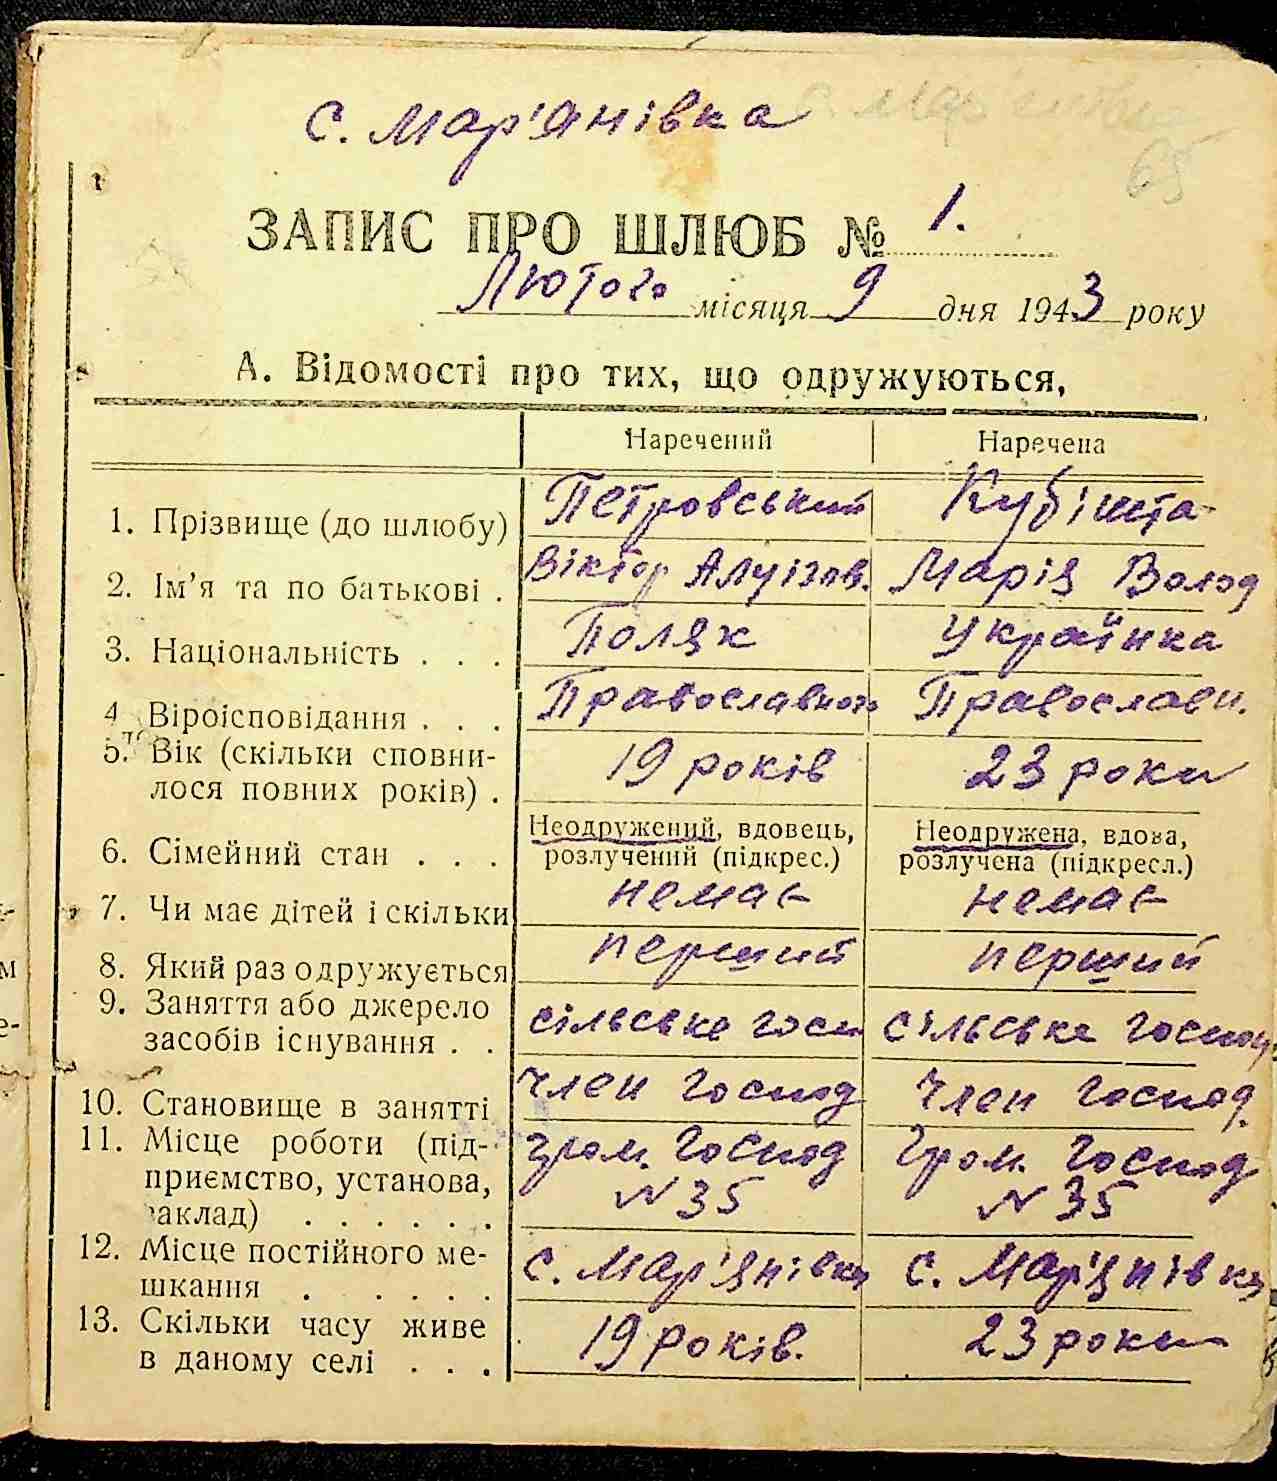 с. Мар'янівка
65
ЗАПИС ПРО ШЛЮБ № 1.
Лютого місяця 9 дня 1943 року
А. Відомості про тих, що одружуються,
Наречений Наречена
1. Прізвище (до шлюбу) Петровський Кубішта
2. Ім'я та по батькові . Віктор Алуізов. Марія Волод
3. Національність . . . Поляк Українка
4 Віроісповідання . . . Православного Православн.
5. Вік (скільки сповни-
лося повних років) . 19 років 23 роки
Неодружений, вдовець, Неодружена, вдова,
6. Сімейний стан . . . розлучений (підкрес.) розлучена (підкресл.)
7. Чи має дітей і скільки немає немає
8. Який раз одружується перший перший
9. Заняття або джерело
засобів існування . . сільське госп сільське господ
10. Становище в занятті член господ член господ.
11. Місце роботи (під- гром. господ гром. господ
приємство, установа, N 35 N 35
заклад) . . . . . .
12. Місце постійного ме- с. Мар'янівка с. Мар'янівка
шкання . . . . . .
13. Скільки часу живе 19 років. 23 роки
в даному селі . . .